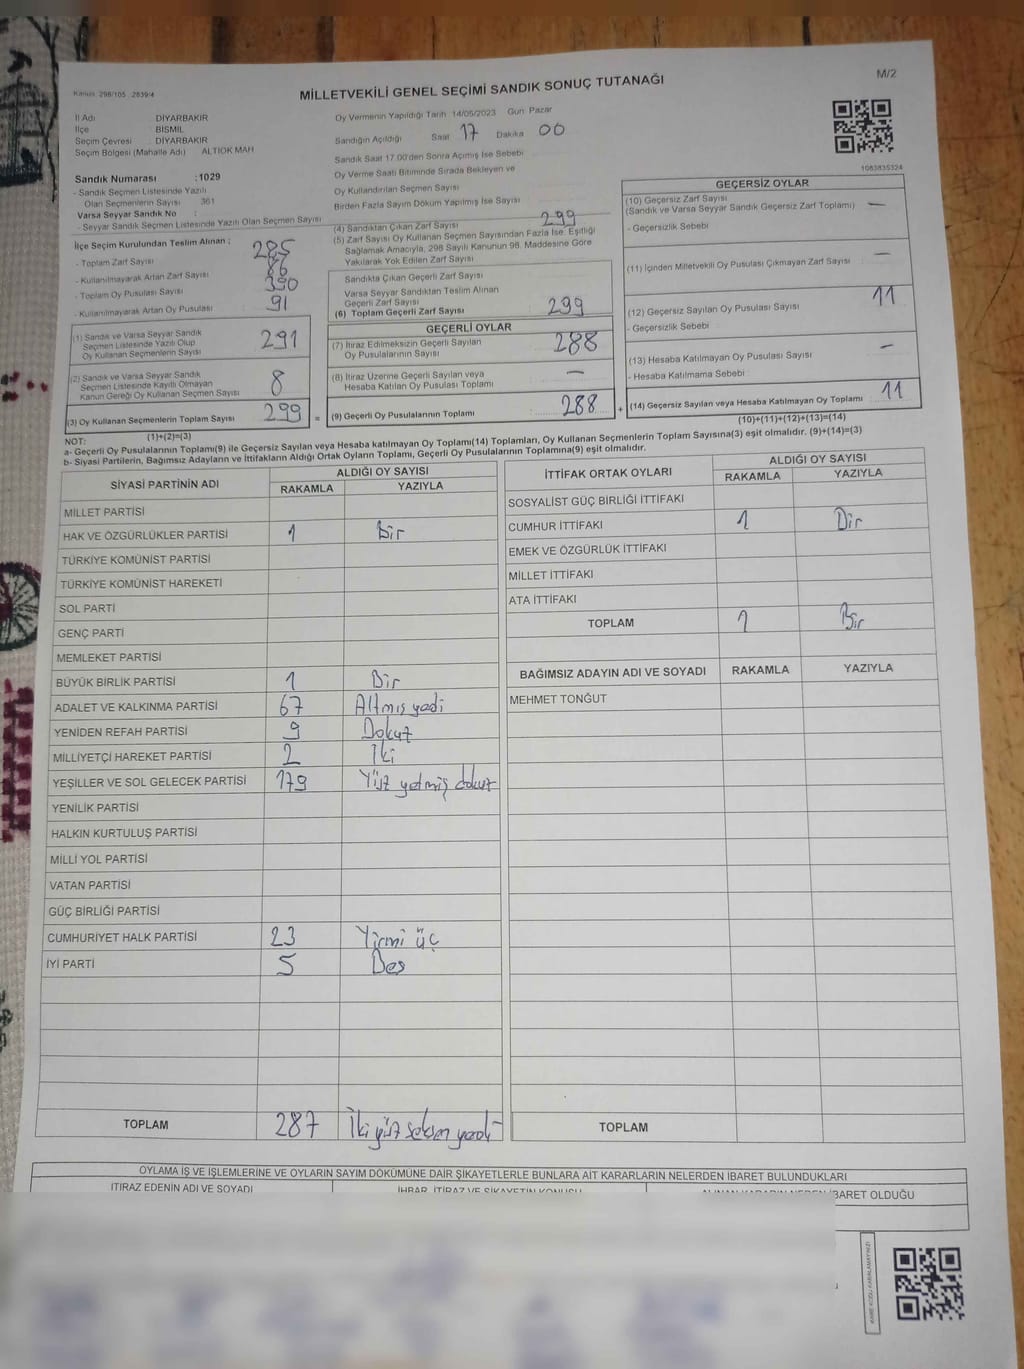 Kanun: 298/105 . 2839/4
M/2
MİLLETVEKİLİ GENEL SEÇİMİ SANDIK SONUÇ TUTANAĞI
İl Adı DİYARBAKIR
İlçe BİSMİL
Seçim Çevresi : DİYARBAKIR
Seçim Bölgesi (Mahalle Adı) ALTIOK MAH
Sandık Numarası :1029
- Sandık Seçmen Listesinde Yazılı
Olan Seçmenlerin Sayısı 361
Varsa Seyyar Sandık No :
- Seyyar Sandık Seçmen Listesinde Yazılı Olan Seçmen Sayısı
İlçe Seçim Kurulundan Teslim Alınan ;
- Toplam Zarf Sayısı 285
- Kullanılmayarak Artan Zarf Sayısı 86
- Toplam Oy Pusulası Sayısı 390
- Kullanılmayarak Artan Oy Pusulası 91
(1) Sandık ve Varsa Seyyar Sandık
Seçmen Listesinde Yazılı Olup
Oy Kullanan Seçmenlerin Sayısı 291
(2) Sandık ve Varsa Seyyar Sandık
Seçmen Listesinde Kayıtlı Olmayan
Kanun Gereği Oy Kullanan Seçmen Sayısı 8
(3) Oy Kullanan Seçmenlerin Toplam Sayısı 299 =
(1)+(2)=(3)
Oy Vermenin Yapıldığı Tarih 14/05/2023 Gün Pazar
Sandığın Açıldığı Saat 17 Dakika 00
Sandık Saat 17.00'den Sonra Açılmış İse Sebebi
Oy Verme Saati Bitiminde Sırada Bekleyen ve
Oy Kullandırılan Seçmen Sayısı
Birden Fazla Sayım Döküm Yapılmış İse Sayısı
(4) Sandıktan Çıkan Zarf Sayısı 299
(5) Zarf Sayısı Oy Kullanan Seçmen Sayısından Fazla İse, Eşitliği
Sağlamak Amacıyla, 298 Sayılı Kanunun 98. Maddesine Göre
Yakılarak Yok Edilen Zarf Sayısı
Sandıkta Çıkan Geçerli Zarf Sayısı
Varsa Seyyar Sandıktan Teslim Alınan
Geçerli Zarf Sayısı
(6) Toplam Geçerli Zarf Sayısı 299
GEÇERLİ OYLAR
(7) İtiraz Edilmeksizin Geçerli Sayılan
Oy Pusulalarının Sayısı 288
(8) İtiraz Üzerine Geçerli Sayılan veya
Hesaba Katılan Oy Pusulası Toplamı —
(9) Geçerli Oy Pusulalarının Toplamı 288 +
1083835324
GEÇERSİZ OYLAR
(10) Geçersiz Zarf Sayısı
(Sandık ve Varsa Seyyar Sandık Geçersiz Zarf Toplamı) —
- Geçersizlik Sebebi
(11) İçinden Milletvekili Oy Pusulası Çıkmayan Zarf Sayısı —
(12) Geçersiz Sayılan Oy Pusulası Sayısı 11
- Geçersizlik Sebebi
(13) Hesaba Katılmayan Oy Pusulası Sayısı —
- Hesaba Katılmama Sebebi
(14) Geçersiz Sayılan veya Hesaba Katılmayan Oy Toplamı 11
(10)+(11)+(12)+(13)=(14)
NOT:
a- Geçerli Oy Pusulalarının Toplamı(9) ile Geçersiz Sayılan veya Hesaba katılmayan Oy Toplamı(14) Toplamları, Oy Kullanan Seçmenlerin Toplam Sayısına(3) eşit olmalıdır. (9)+(14)=(3)
b- Siyasi Partilerin, Bağımsız Adayların ve İttifakların Aldığı Ortak Oyların Toplamı, Geçerli Oy Pusulalarının Toplamına(9) eşit olmalıdır.
SİYASİ PARTİNİN ADI ALDIĞI OY SAYISI
RAKAMLA YAZIYLA
MİLLET PARTİSİ
HAK VE ÖZGÜRLÜKLER PARTİSİ 1 Bir
TÜRKİYE KOMÜNİST PARTİSİ
TÜRKİYE KOMÜNİST HAREKETİ
SOL PARTİ
GENÇ PARTİ
MEMLEKET PARTİSİ
BÜYÜK BİRLİK PARTİSİ 1 Bir
ADALET VE KALKINMA PARTİSİ 67 Altmış yedi
YENİDEN REFAH PARTİSİ 9 Dokuz
MİLLİYETÇİ HAREKET PARTİSİ 2 İki
YEŞİLLER VE SOL GELECEK PARTİSİ 179 Yüz yetmiş dokuz
YENİLİK PARTİSİ
HALKIN KURTULUŞ PARTİSİ
MİLLİ YOL PARTİSİ
VATAN PARTİSİ
GÜÇ BİRLİĞİ PARTİSİ
CUMHURİYET HALK PARTİSİ 23 Yirmi üç
İYİ PARTİ 5 Beş
TOPLAM 287 İki yüz seksen yedi
İTTİFAK ORTAK OYLARI ALDIĞI OY SAYISI
RAKAMLA YAZIYLA
SOSYALİST GÜÇ BİRLİĞİ İTTİFAKI
CUMHUR İTTİFAKI 1 Bir
EMEK VE ÖZGÜRLÜK İTTİFAKI
MİLLET İTTİFAKI
ATA İTTİFAKI
TOPLAM 1 Bir
BAĞIMSIZ ADAYIN ADI VE SOYADI RAKAMLA YAZIYLA
MEHMET TONĞUT
TOPLAM
OYLAMA İŞ VE İŞLEMLERİNE VE OYLARIN SAYIM DÖKÜMÜNE DAİR ŞİKAYETLERLE BUNLARA AİT KARARLARIN NELERDEN İBARET BULUNDUKLARI
İTİRAZ EDENİN ADI VE SOYADI İHBAR, İTİRAZ VE ŞİKAYETİN KONUSU ALINAN KARARIN NEDEN İBARET OLDUĞU
KARE KODU KARALAMAYINIZ!